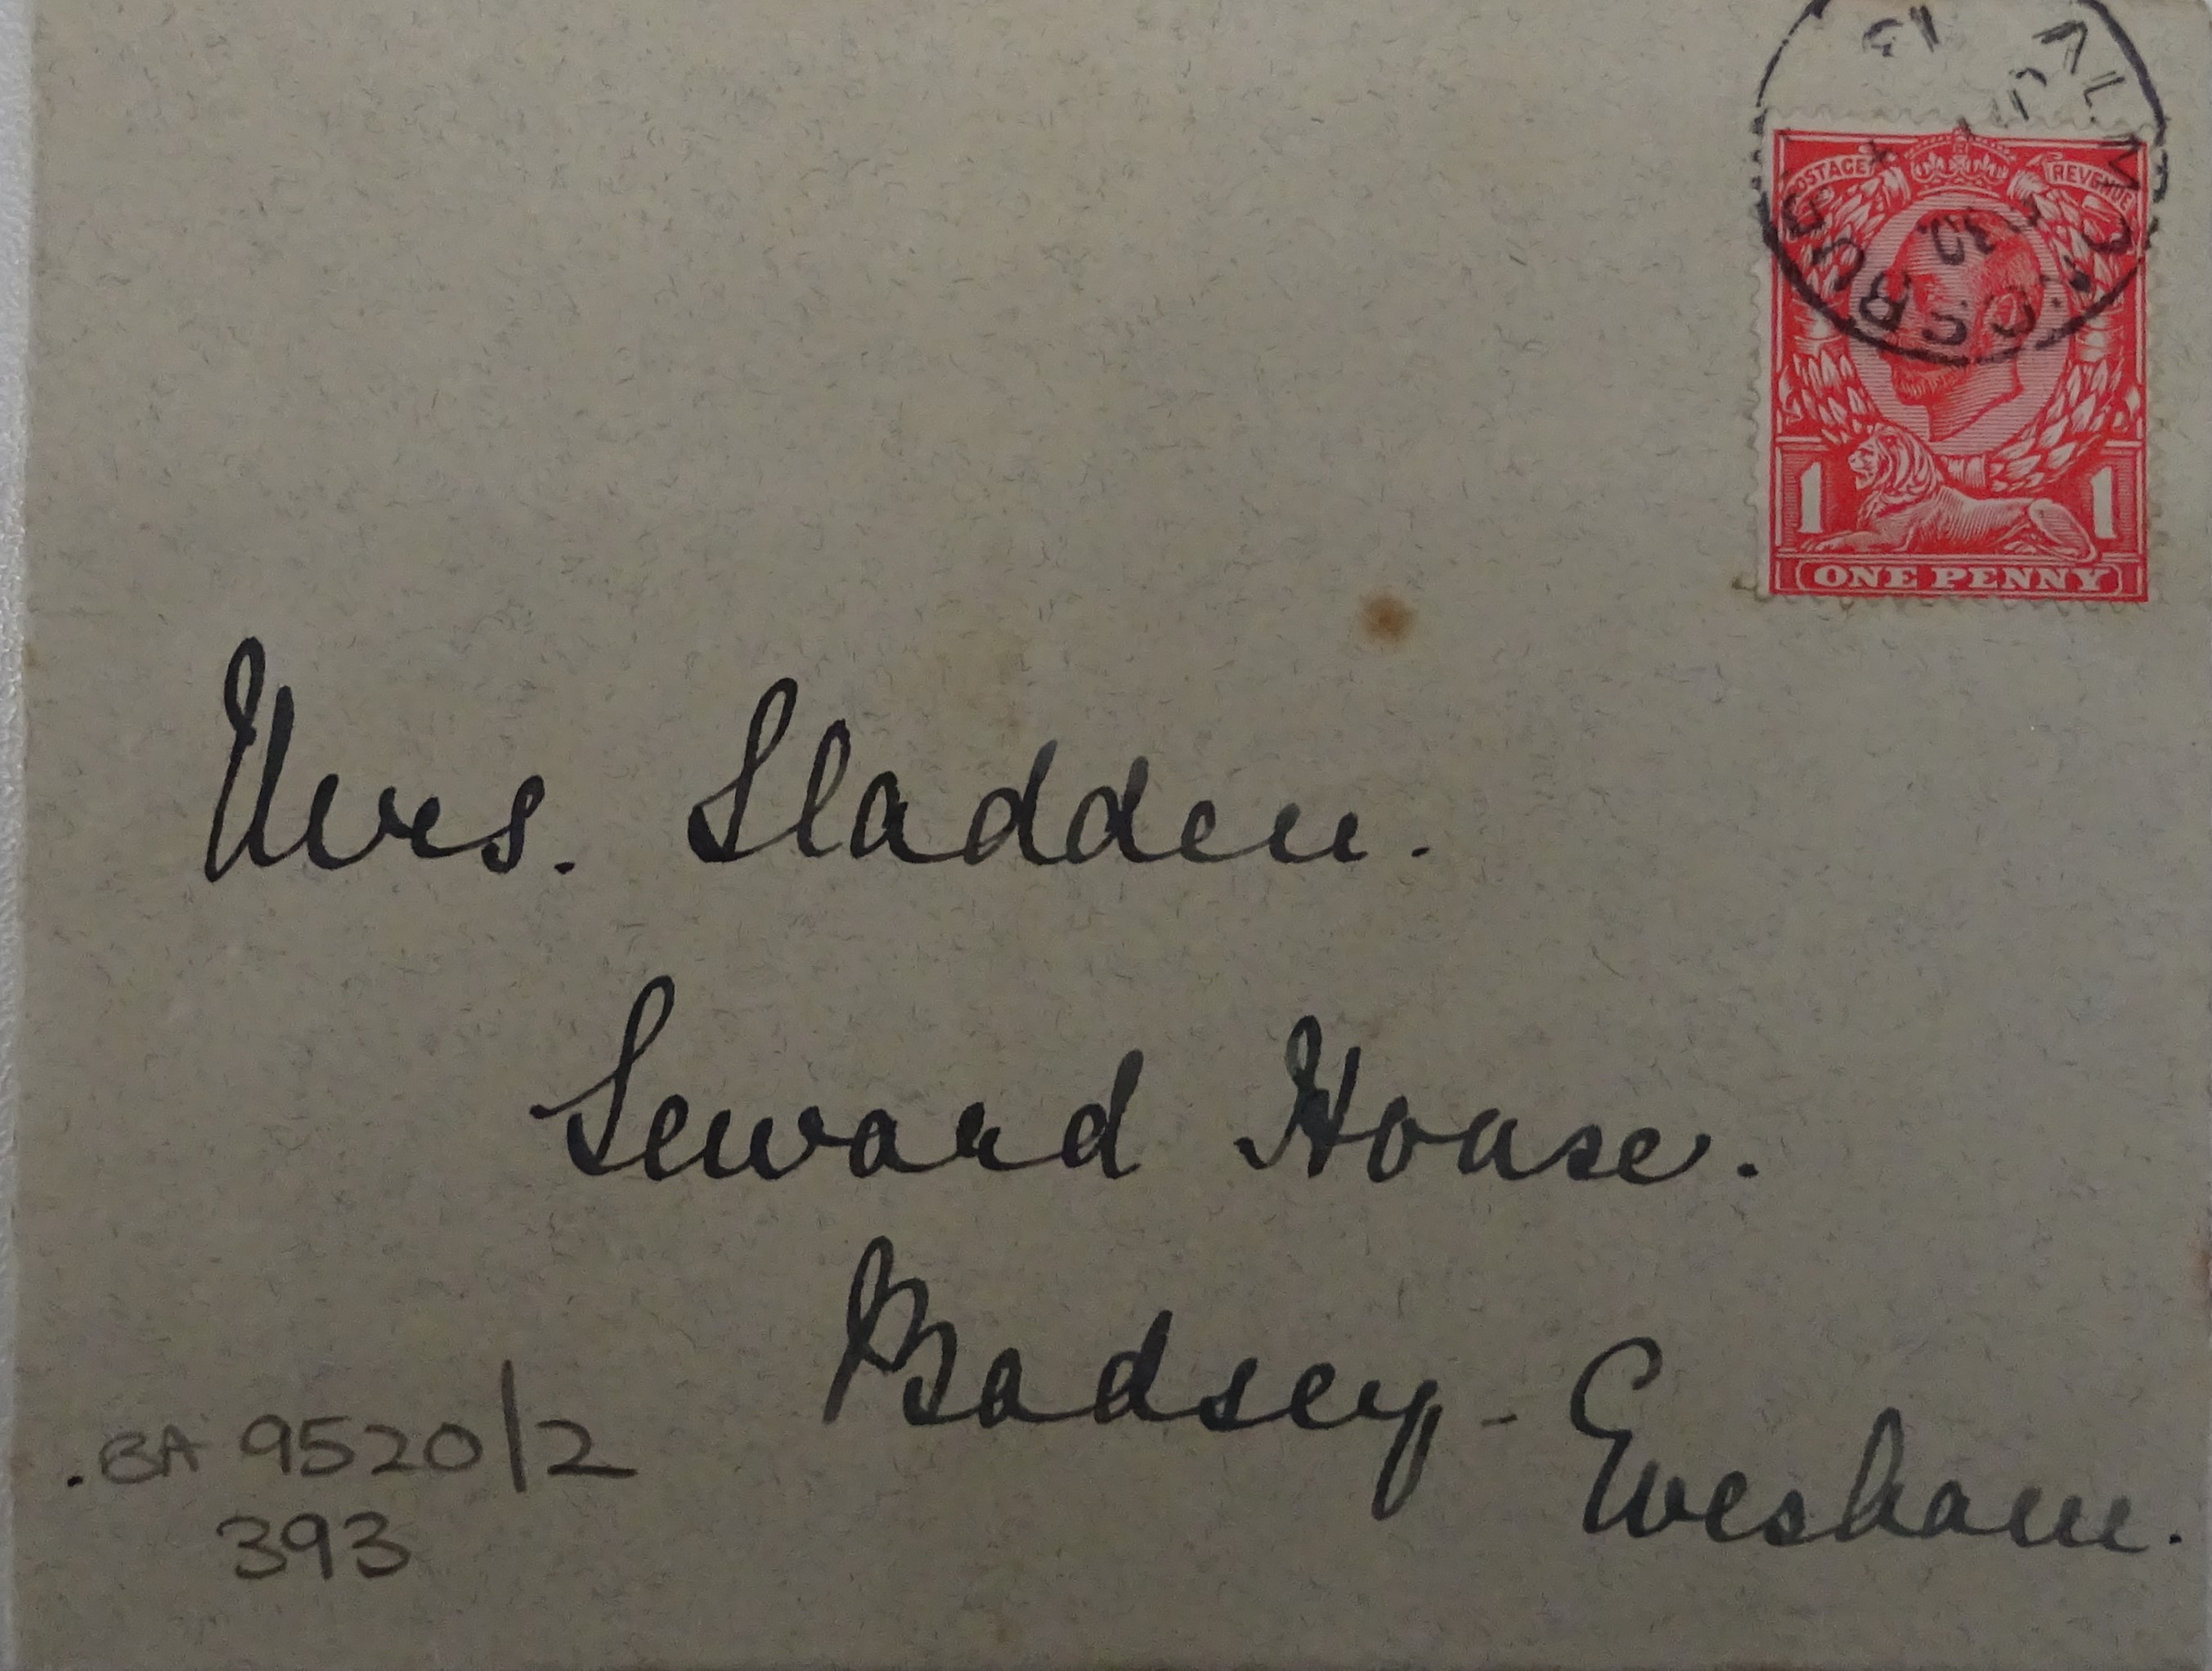 13
POSTAGE REVENUE
30
1 1
ONE PENNY
Mrs. Sladden.
Seward House.
Badsey - Evesham.
. BA 9520/2
393